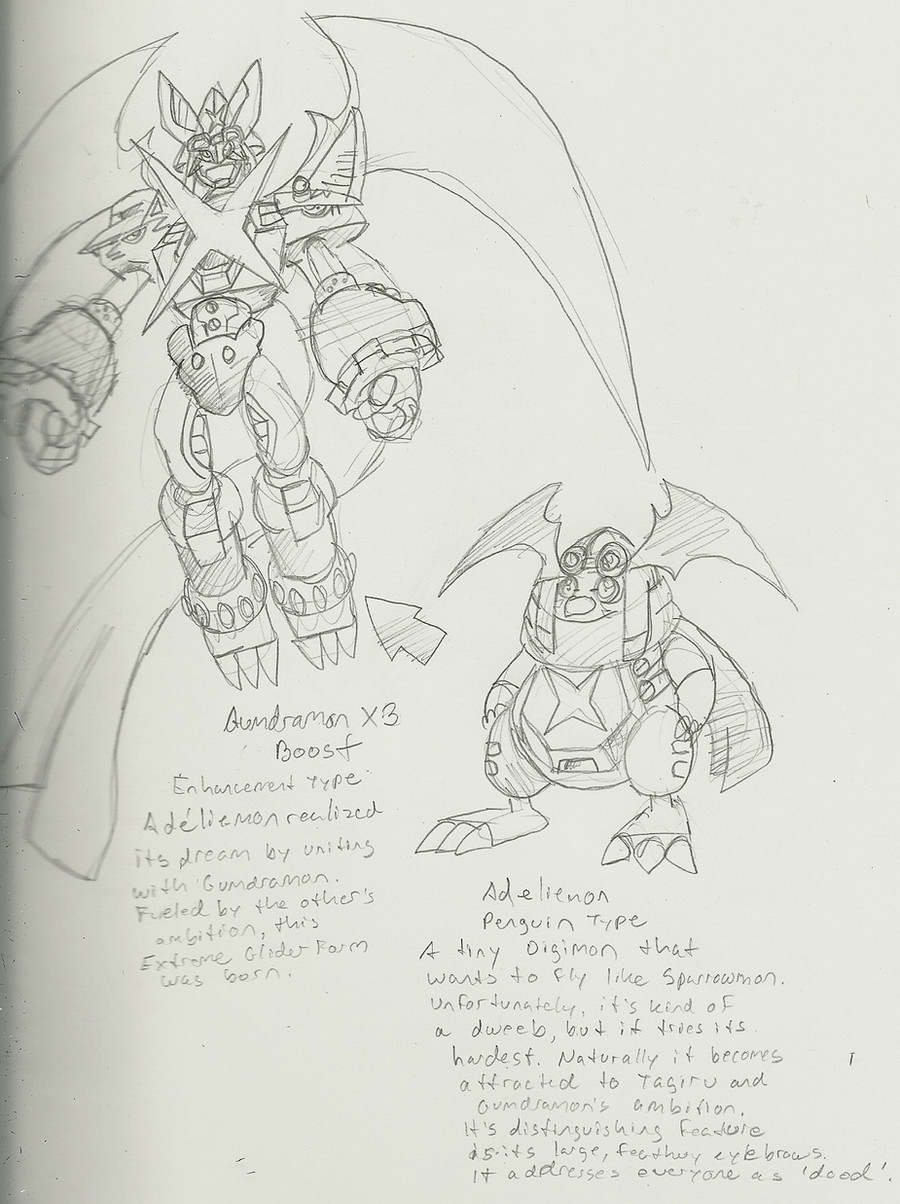 Gumdramon X3
Boost
Enhancement Type
Adéliemon realized
its dream by uniting
with Gumdramon.
Fueled by the other's
ambition, this
Extreme Glider Form
was born.
Adeliemon
Penguin Type
A tiny Digimon that
wants to fly like Sparrowmon.
Unfortunately, it's kind of
a dweeb, but it tries its
hardest. Naturally it becomes
attracted to Tagiru and
Gumdramon's ambition.
It's distinguishing feature
is its large, feathery eyebrows.
It addresses everyone as 'dood'.